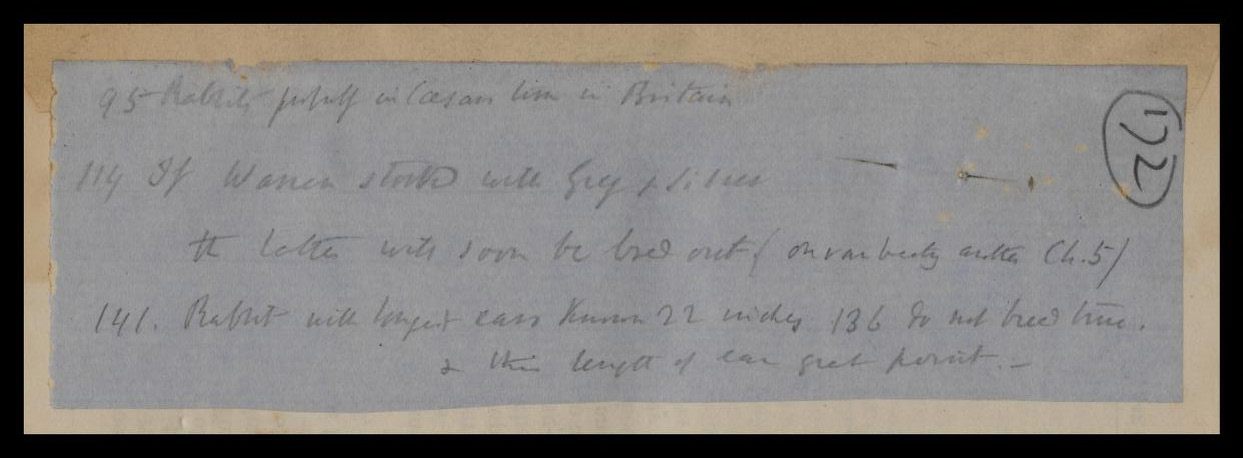 95 Rabbits in Cæsars time in Britain
172
114 If Warren stocked with Grey & Silver
the latter will soon be bred out ( on variability Ch. 5)
141. Rabbit with longest ears known 22 inches 136 do not breed true.
& this length of ear great point. —